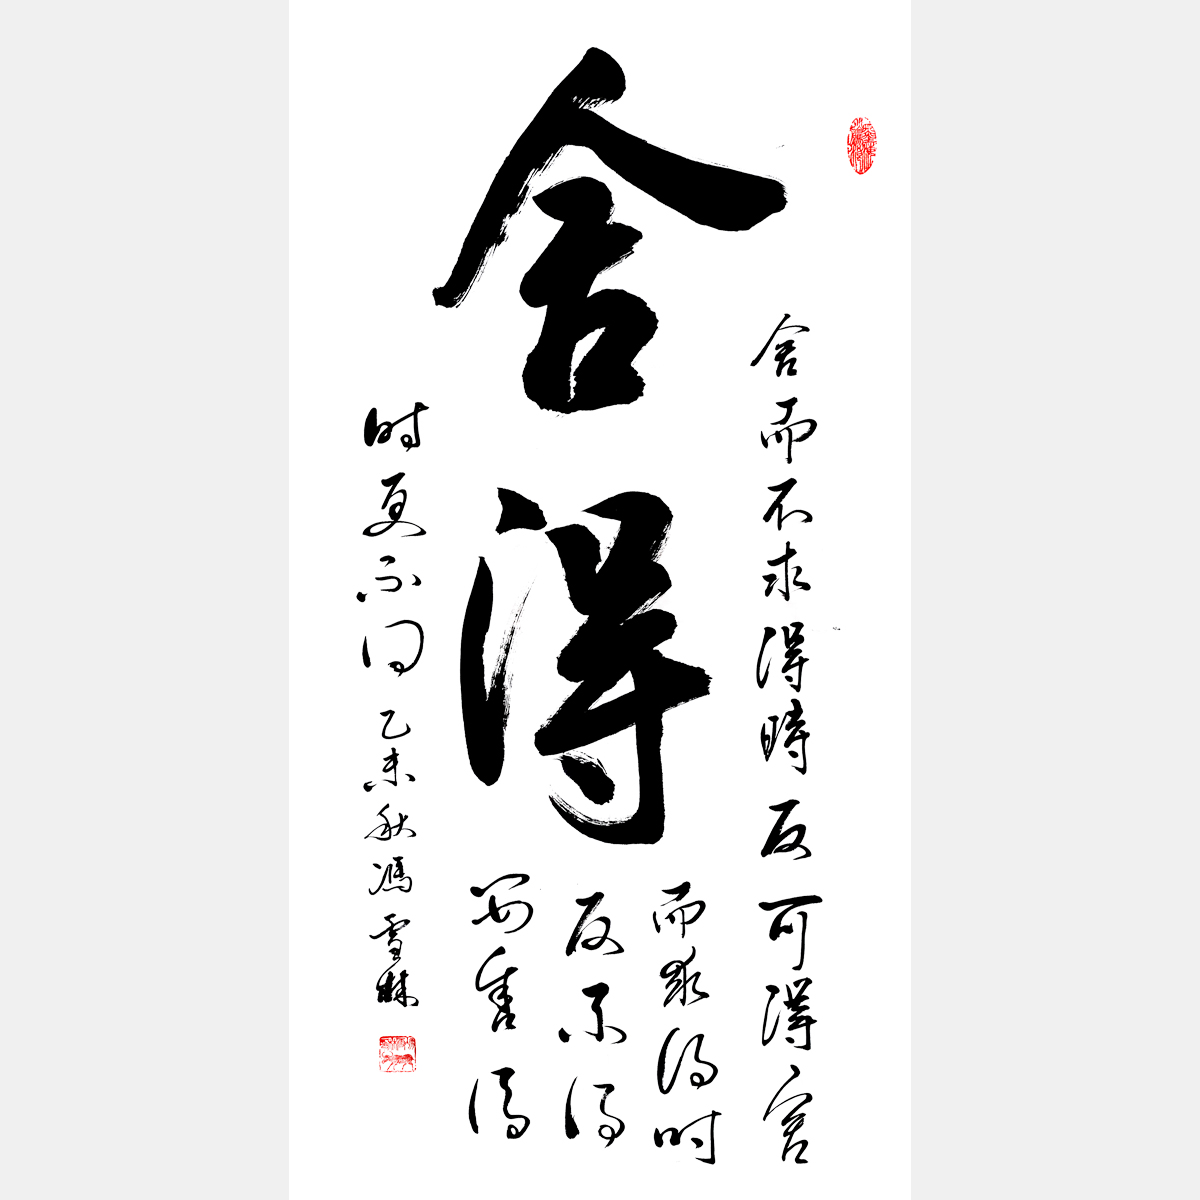 舍得
舍而不求得時反可得舍
而求得时
反不得
舍得
时更不同乙未秋馮雪林